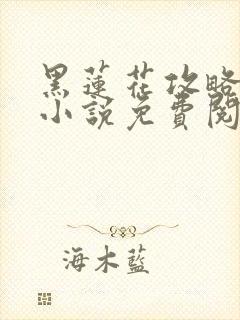 黑蓮花攻略
小說免費閱
海木藍